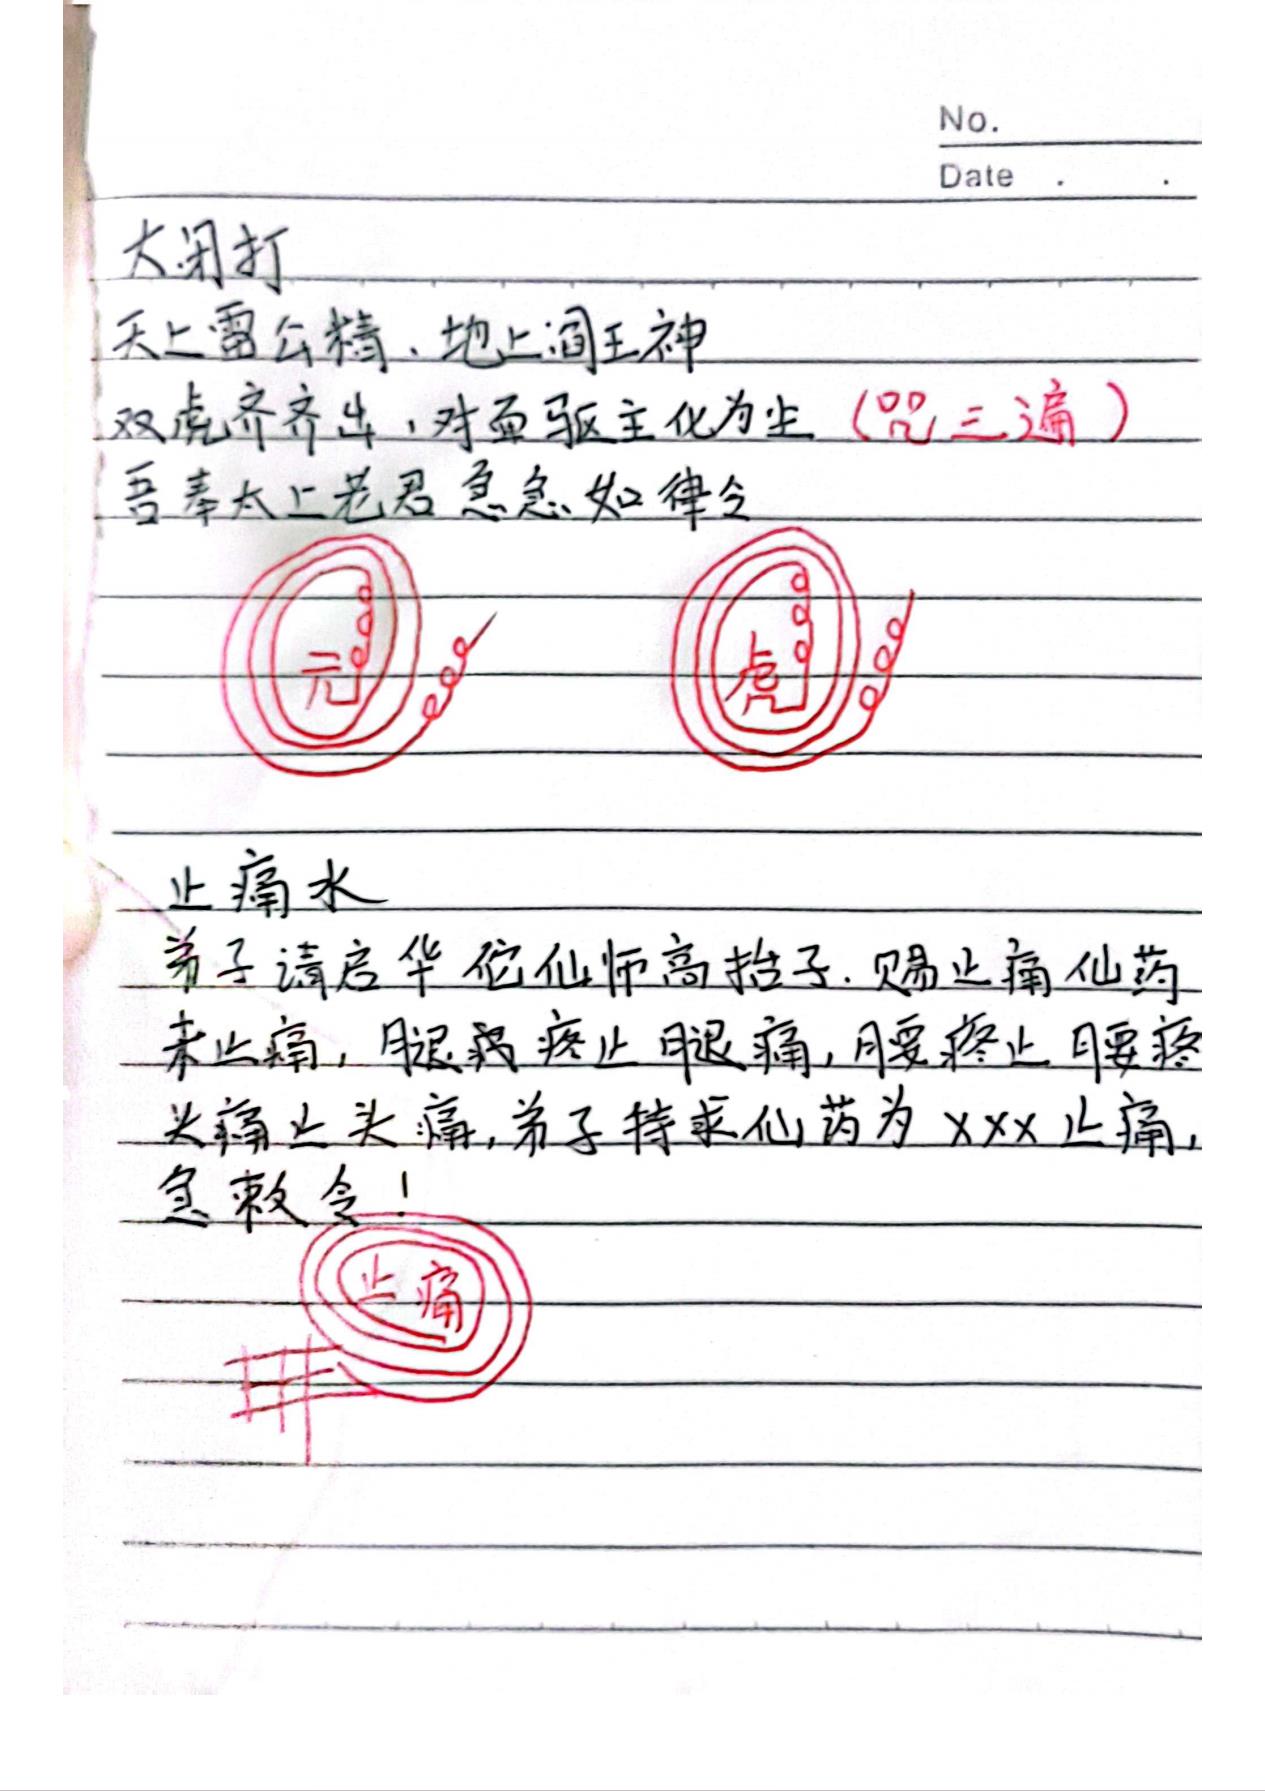 No.
Date . .
大闭打
天上雷公精.地上阎王神
双虎齐齐出,对面驱主化为尘(咒三遍)
吾奉太上老君急急如律令
元 虎
止痛水
弟子请启华佗仙师高抬子.赐止痛仙药
来止痛,腿疼止腿痛,腰疼止腰疼
头痛止头痛,弟子特求仙药为xxx止痛,
急敕令!
止痛